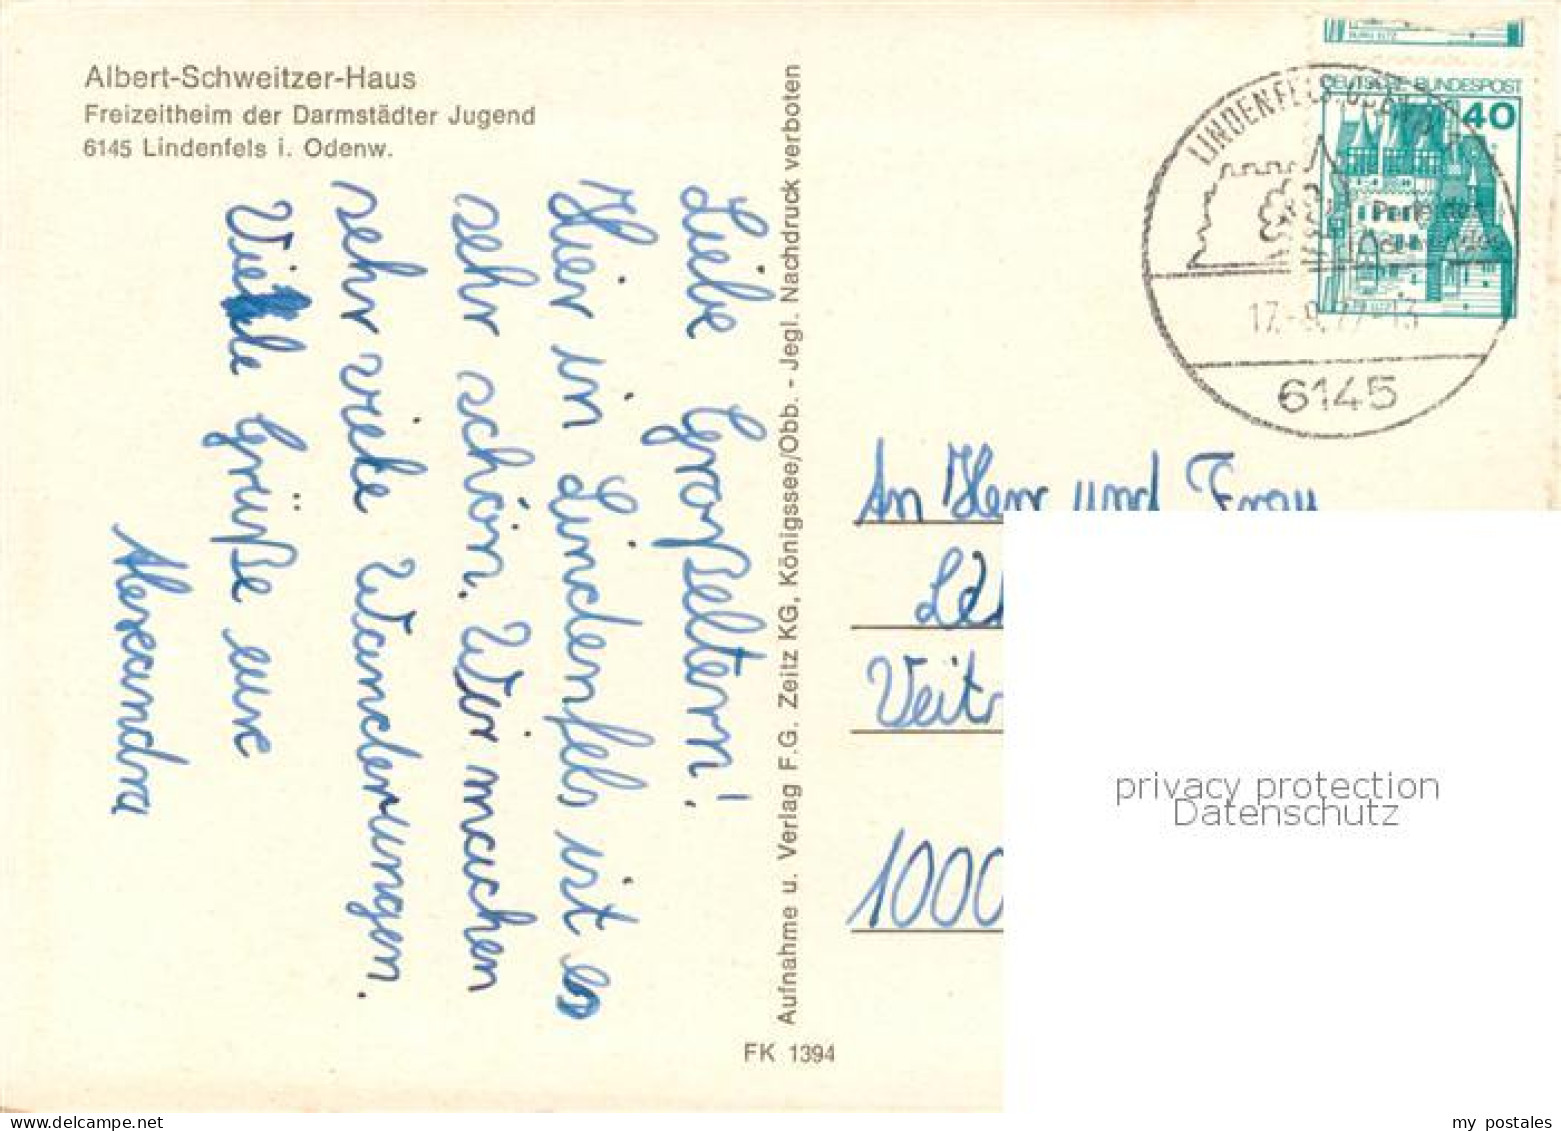 Albert-Schweitzer-Haus
Freizeitheim der Darmstädter Jugend
6145 Lindenfels i. Odenw.
Liebe Großeltern!
Hier in Lindenfels ist es
sehr schön. Wir machen
sehr viele Wanderungen.
Viele Grüße eure
Alexandra
Aufnahme u. Verlag F.G. Zeitz KG, Königssee/Obb. - Jegl. Nachdruck verboten
FK 1394
BURG ELTZ
DEUTSCHE BUNDESPOST
40
LINDENFELS
Perle des
17.-9.77-13
6145
An Herr und Frau
Veit
1000
privacy protection
Datenschutz
my postales